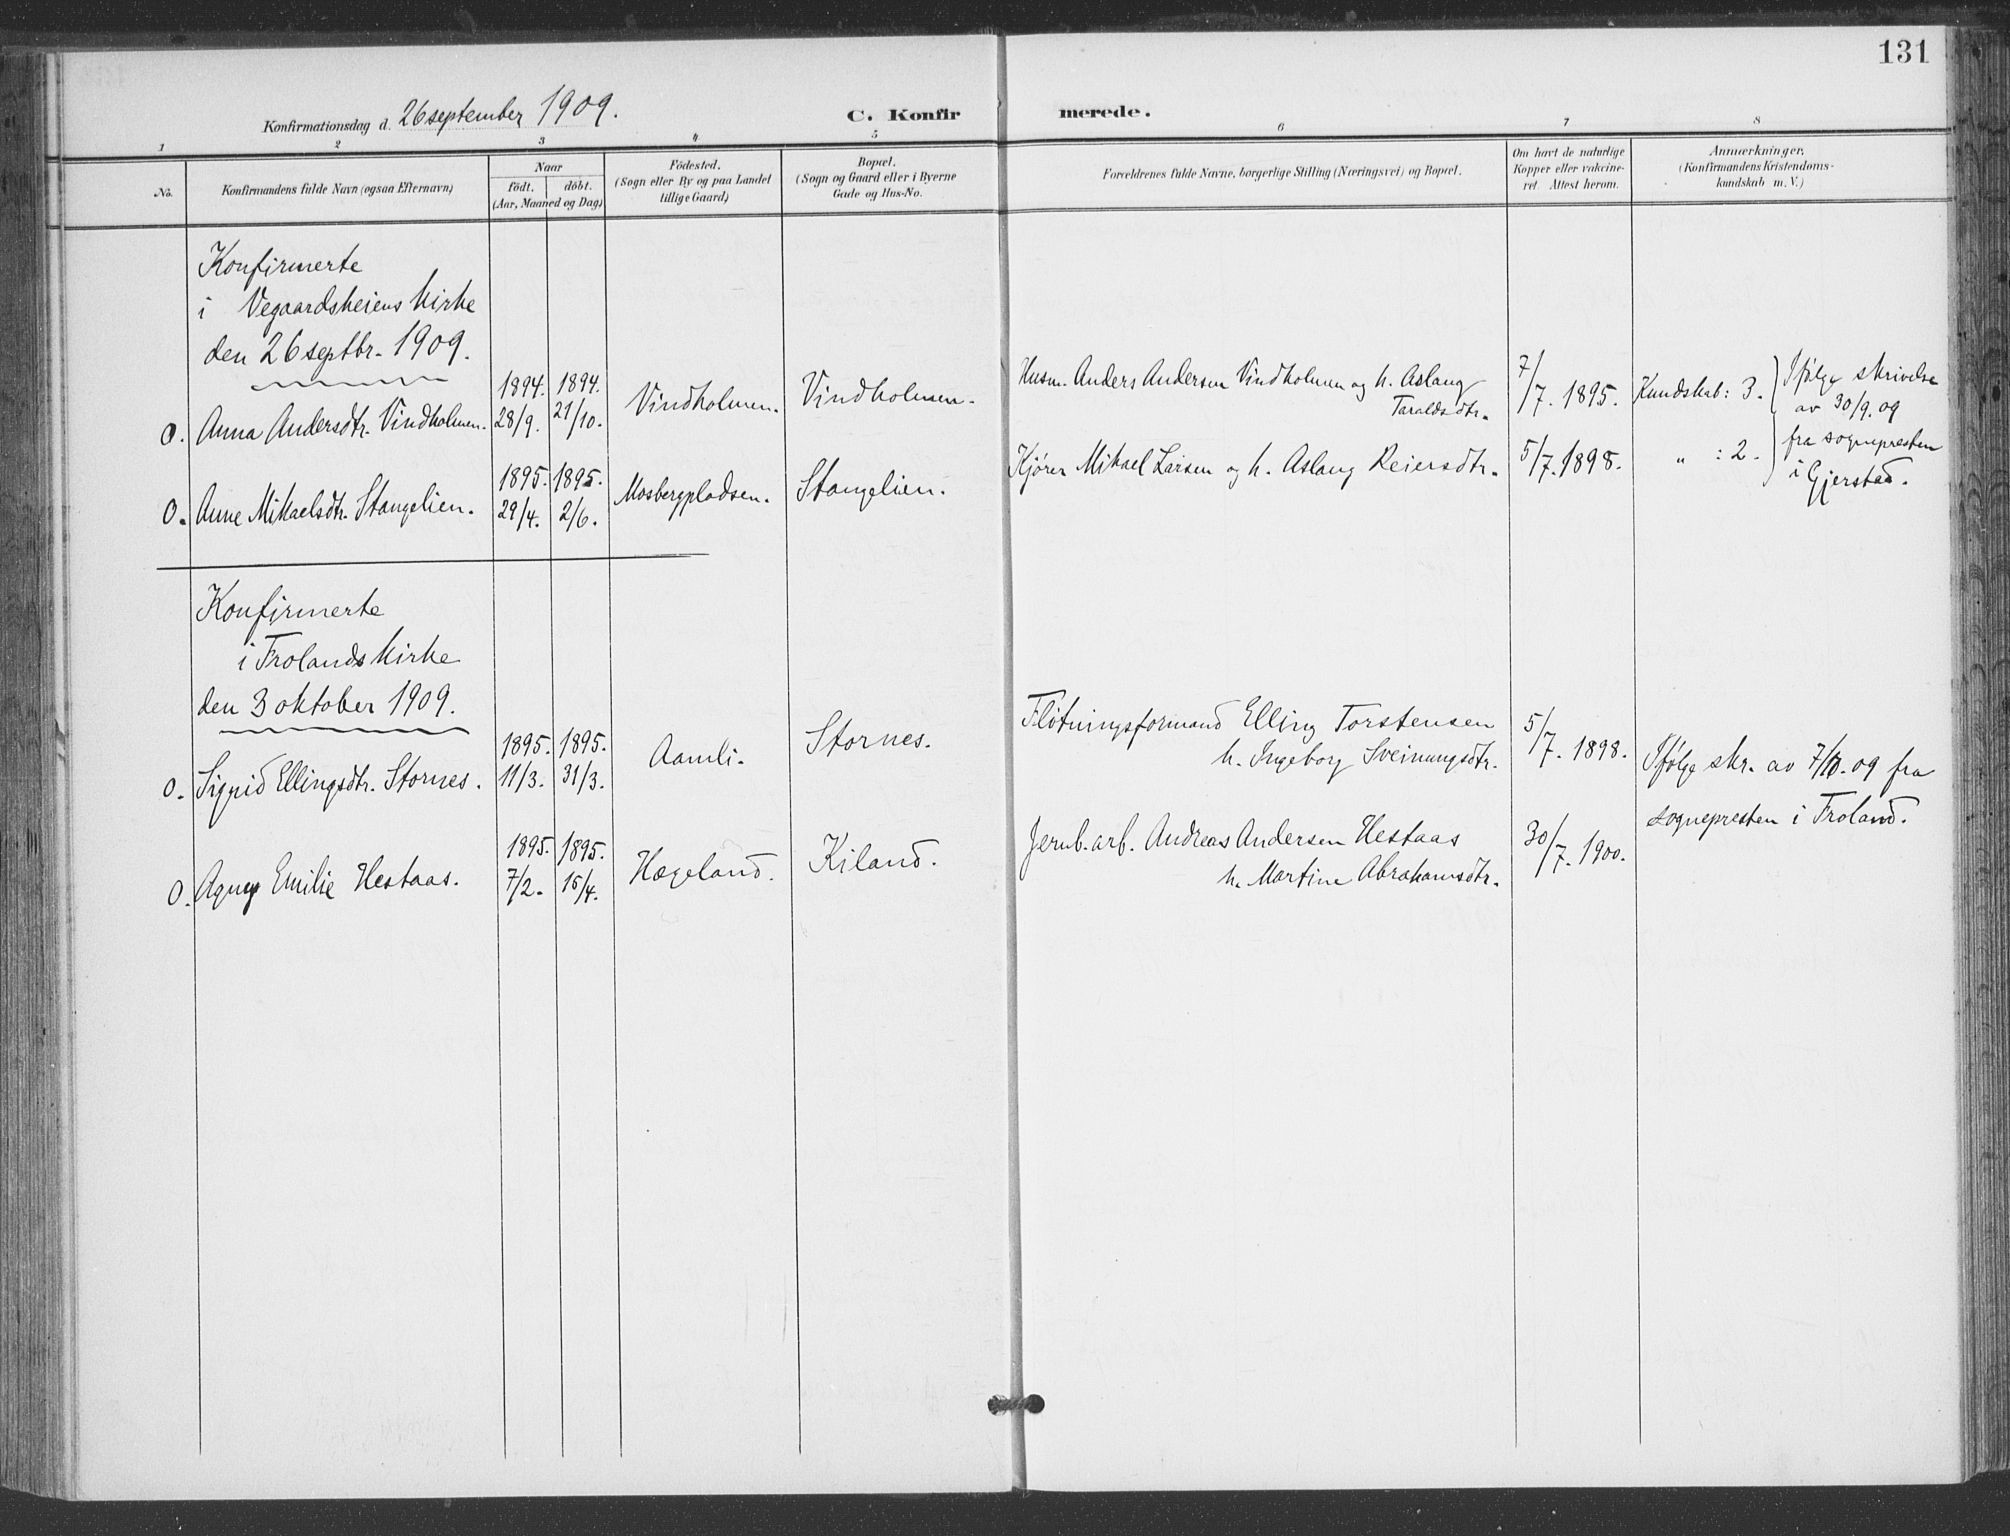 131
Konfirmationsdag d. 26 september 1909.
C. Konfirmerede.
1 2 3 4 5 6 7 8
No.
Konfirmandens fulde Navn (ogsaa Efternavn)
Naar
født. døbt.
(Aar, Maaned og Dag)
Fødested.
(Sogn eller By og paa Landet
tillige Gaard)
Bopæl.
(Sogn og Gaard eller i Byerne
Gade og Hus-No.
Forældrenes fulde Navne, borgerlige Stilling (Næringsvei) og Bopæl.
Om havt de naturlige
Kopper eller vakcine-
ret. Attest herom.
Anmærkninger.
(Konfirmandens Kristendoms-
kundskab m. V.)
Konfirmerte
i Vegaardsheiens kirke
den 26 septbr. 1909.
0. Anna Andersdtr. Vindholmen. 1894. 28/9. 1894. 21/10. Vindholmen. Vindholmen. Husm. Anders Andersen Vindholmen og h. Aslaug
Taraldsdtr. 7/7. 1895. Kundskab: 3.
0. Anne Mikaelsdtr. Stangelien. 1895. 29/4. 1895. 2/6. Mosbergpladsen. Stangelien. Kjører Mikael Larsen og h. Aslaug Reiersdtr. 5/7. 1898. " : 2.
Ifølge skrivelse
av 30/9. 09
fra sognepresten
i Gjerstad.
Konfirmerte
i Frolands kirke
den 3 oktober 1909.
0. Sigrid Ellingsdtr. Stornes. 1895. 11/3. 1895. 31/3. Aamli. Stornes. Fløtningsformand Elling Torstensen
h. Ingeborg Sveinungsdtr. 5/7. 1898.
0. Agnes Emilie Hestaas. 1895. 7/2. 1895. 15/4. Hægeland. Kiland. Jernb. arb. Andreas Andersen Hestaas
h. Martine Abrahamsdtr. 30/7. 1900.
Ifølge skr. av 7/10. 09 fra
sognepresten i Froland.